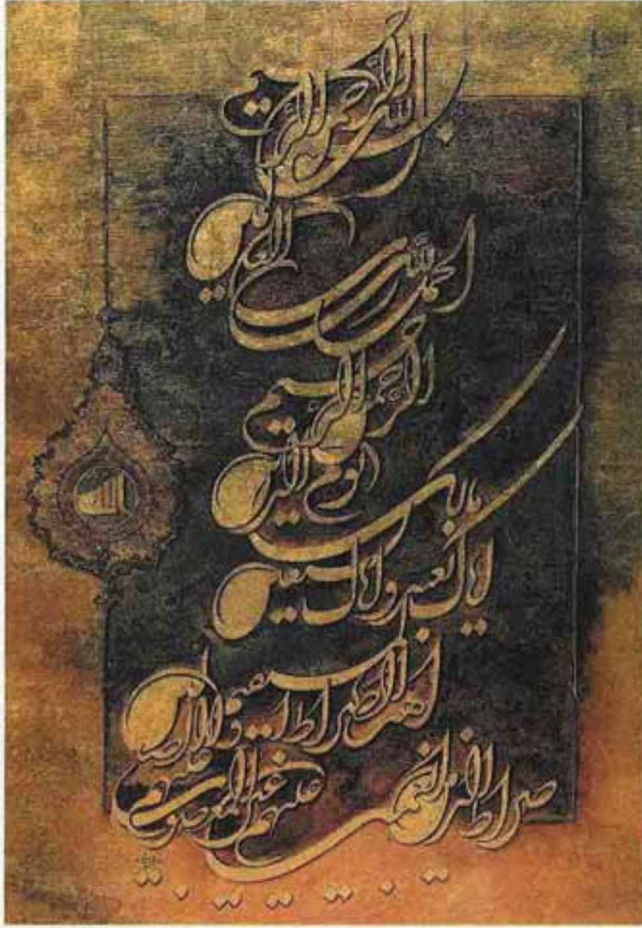 بسم الله الرحمن الرحيم
الحمد لله رب العالمين
الرحمن الرحيم
مالك يوم الدين
اياك نعبد واياك نستعين
اهدنا الصراط المستقيم
صراط الذين انعمت عليهم غير المغضوب عليهم ولا الضالين